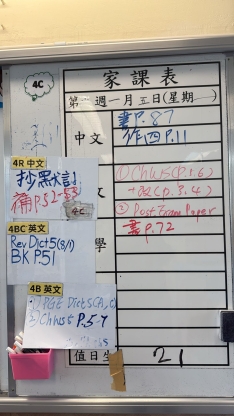 4C
家課表
第二週一月五日(星期一)
書P.87
中文
作四P.11
4R 中文
抄默訂
補P.52-53
4C
文
① Chws5(P.1.6)
+改(P.3.4)
② Post Exam Paper
4BC 英文
Rev Dict5(8/1)
BK P.51
學
書P.72
4B 英文
① PGE Dict5
② Chws5 P.5-7
值日生
21